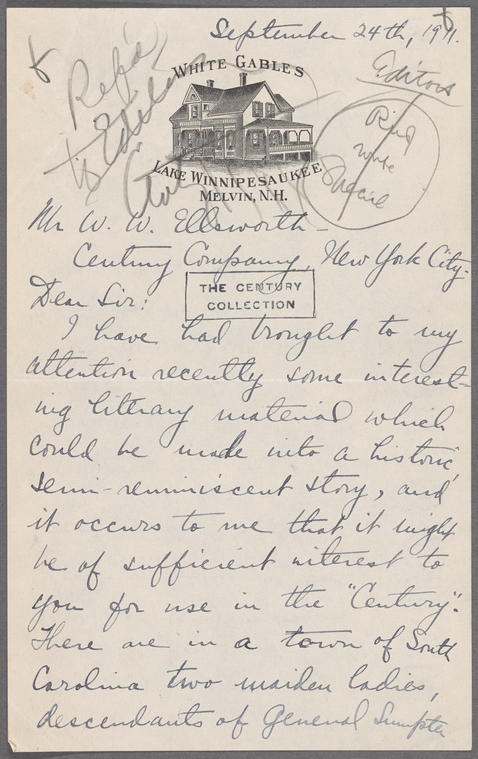 September 24th, 1911.
Editors
Ref'd
to Editor
WHITE GABLES
LAKE WINNIPESAUKEE
MELVIN, N.H.
Mr W. W. Ellsworth -
Century Company, New York City.
THE CENTURY
COLLECTION
Dear Sir:
I have had brought to my
attention recently some interest-
ing literary material which
could be made into a historic,
semi-reminiscent story, and
it occurs to me that it might
be of sufficient interest to
you for use in the "Century".
There are in a town of South
Carolina two maiden ladies,
descendants of General Sumpter